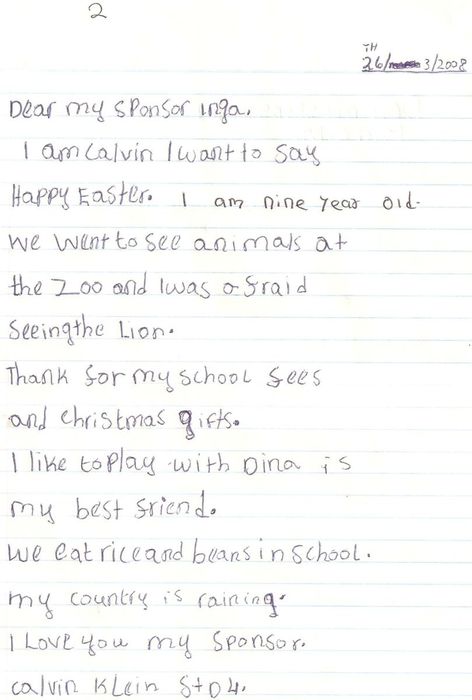 2
TH
26/3/2008
Dear my sponsor inga.
I am Calvin I want to say
Happy Easter. I am nine year old.
we went to see animals at
the Zoo and I was afraid
Seeing the Lion.
Thank for my school fees
and Christmas gifts.
I like to play with Dina is
my best friend.
we eat rice and beans in School.
my country is raining.
I Love you my sponsor.
Calvin Klein STD 4.